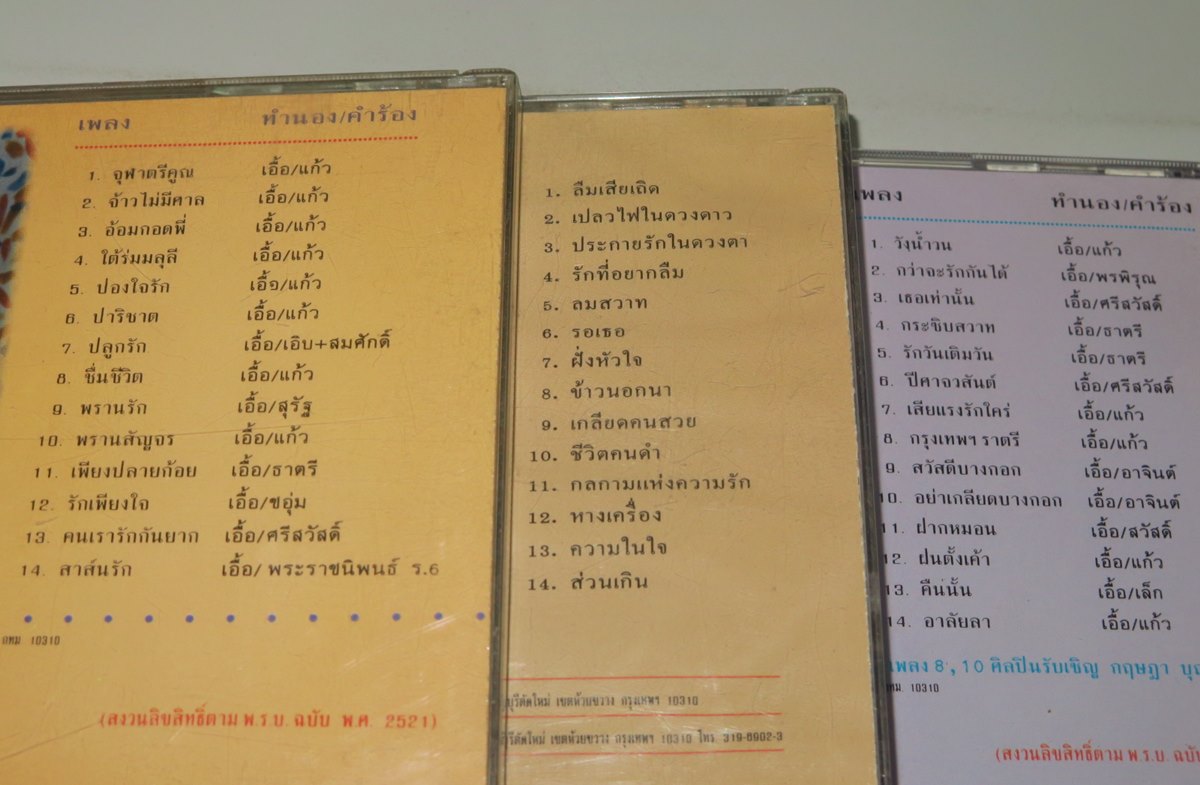 เพลง ทำนอง/คำร้อง
1. จุฬาตรีคูณ เอื้อ/แก้ว
2. จ้าวไม่มีศาล เอื้อ/แก้ว
3. อ้อมกอดพี่ เอื้อ/แก้ว
4. ใต้ร่มมลุลี เอื้อ/แก้ว
5. ปองใจรัก เอื้อ/แก้ว
6. ปาริชาต เอื้อ/แก้ว
7. ปลูกรัก เอื้อ/เอิบ+สมศักดิ์
8. ชื่นชีวิต เอื้อ/แก้ว
9. พรานรัก เอื้อ/สุรัฐ
10. พรานสัญจร เอื้อ/แก้ว
11. เพียงปลายก้อย เอื้อ/ธาตรี
12. รักเพียงใจ เอื้อ/ชอุ่ม
13. คนเรารักกันยาก เอื้อ/ศรีสวัสดิ์
14. สาส์นรัก เอื้อ/ พระราชนิพนธ์ ร.6
กทม. 10310
(สงวนลิขสิทธิ์ตาม พ.ร.บ. ฉบับ พ.ศ. 2521)
1. ลืมเสียเถิด
2. เปลวไฟในดวงดาว
3. ประกายรักในดวงตา
4. รักที่อยากลืม
5. ลมสวาท
6. รอเธอ
7. ฝั่งหัวใจ
8. ข้าวนอกนา
9. เกลียดคนสวย
10. ชีวิตคนดำ
11. กลกามแห่งความรัก
12. หางเครื่อง
13. ความในใจ
14. ส่วนเกิน
บุรีตัดใหม่ เขตห้วยขวาง กรุงเทพฯ 10310
รีตัดใหม่ เขตห้วยขวาง กรุงเทพฯ 10310 โทร. 319-6902-3
เพลง ทำนอง/คำร้อง
1. วังน้ำวน เอื้อ/แก้ว
2. กว่าจะรักกันได้ เอื้อ/พรพิรุณ
3. เธอเท่านั้น เอื้อ/ศรีสวัสดิ์
4. กระซิบสวาท เอื้อ/ธาตรี
5. รักวันเติมวัน เอื้อ/ธาตรี
6. ปีศาจวสันต์ เอื้อ/ศรีสวัสดิ์
7. เสียแรงรักใคร่ เอื้อ/แก้ว
8. กรุงเทพฯ ราตรี เอื้อ/แก้ว
9. สวัสดีบางกอก เอื้อ/อาจินต์
10. อย่าเกลียดบางกอก เอื้อ/อาจินต์
11. ฝากหมอน เอื้อ/สวัสดิ์
12. ฝนตั้งเค้า เอื้อ/แก้ว
13. คืนนั้น เอื้อ/เล็ก
14. อาลัยลา เอื้อ/แก้ว
เพลง 8,10 ศิลปินรับเชิญ กฤษฎา
กทม. 10310
(สงวนลิขสิทธิ์ตาม พ.ร.บ. ฉบับ